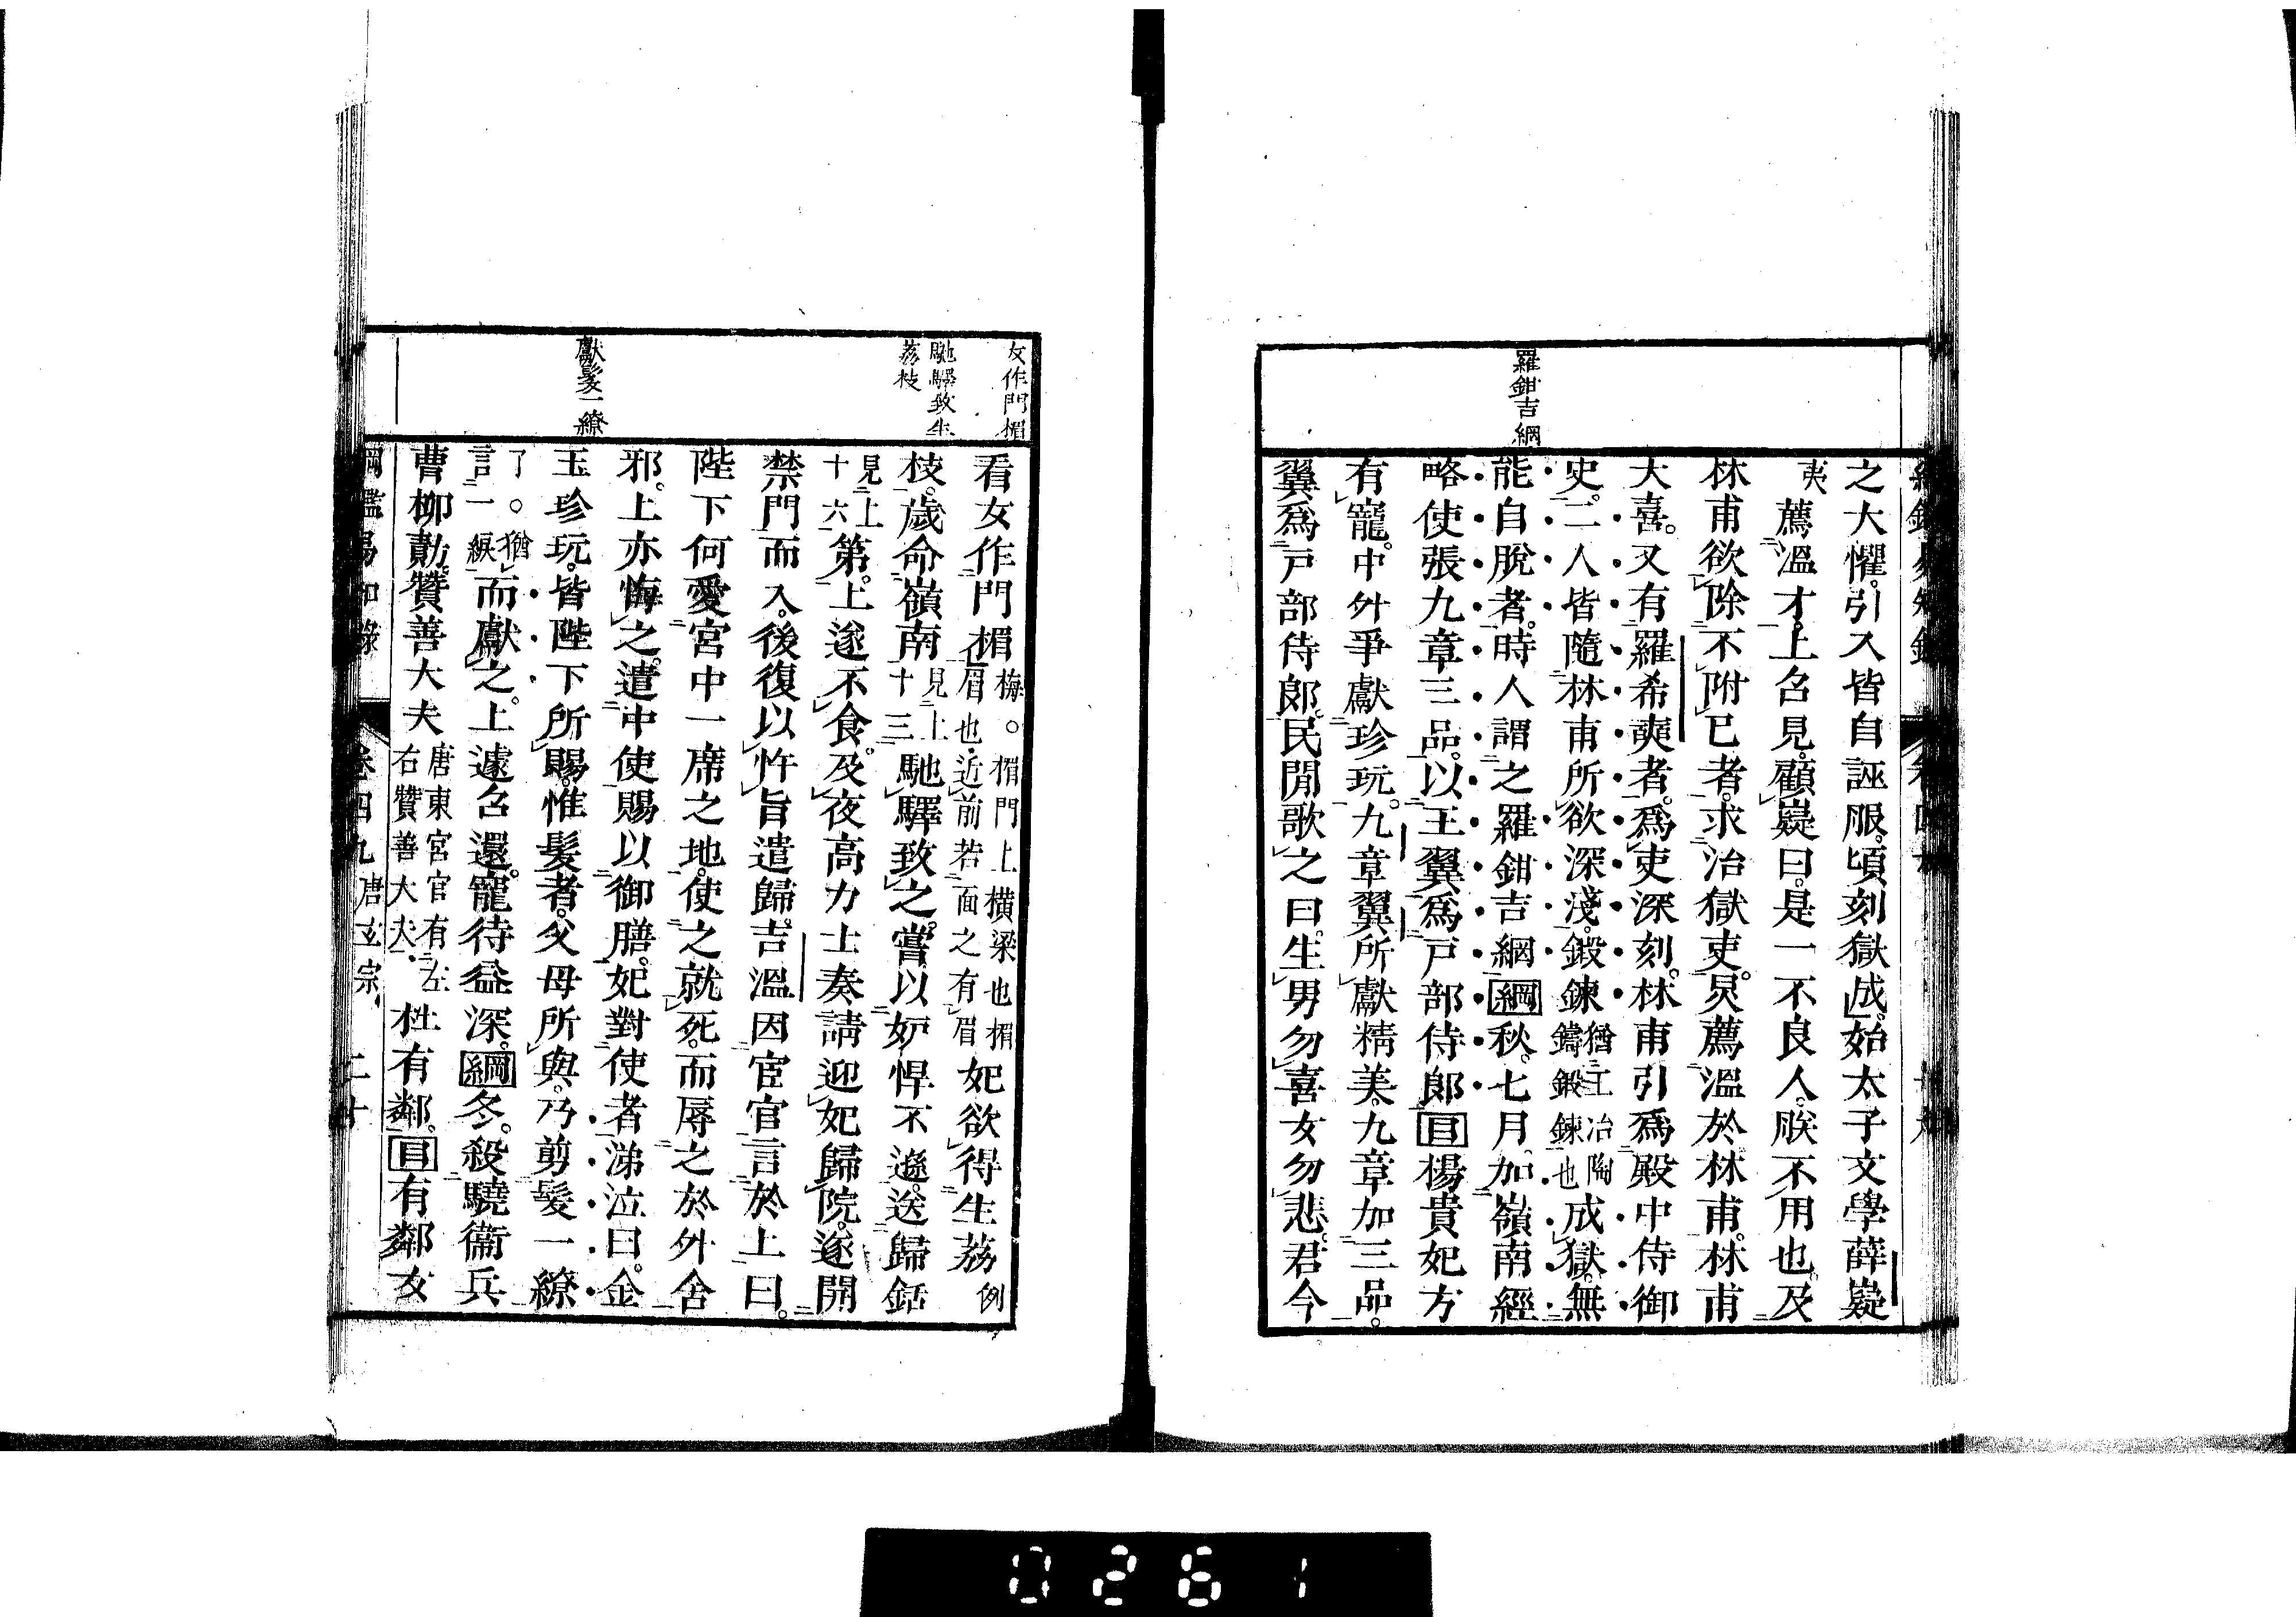 羅鉗吉網
之大懼。引入皆自誣服。頃刻獄成。始太子文學薛嶷
夷薦溫才。上召見。顧嶷曰。是一不良人。朕不用也。及
林甫欲除不附已者。求治獄吏。炅薦溫於林甫。林甫
大喜。又有羅希奭者。爲吏深刻。林甫引爲殿中侍御
史。二人皆隨林甫所欲深淺。鍛鍊猶工冶陶鑄鍛鍊也成獄。無
能自脫者。時人謂之羅鉗吉網綱秋。七月。加嶺南經
略使張九章三品。以王翼爲戸部侍郎目楊貴妃方
有寵。中外爭獻珍玩。九章翼所獻精美。九章加三品。
翼爲戸部侍郎。民閒歌之曰。生男勿喜女勿悲。君今
女作門楣
馳驛致生
荔枝
獻髮一繚
看女作門楣梅。楣門上橫梁也楣眉也近前若面之有眉妃欲得生荔例
枝。歲命嶺南見上十三馳驛致之。嘗以妒悍不遜。送歸銛
見上十六第。上遂不食。及夜高力士奏請迎妃歸院。遂開
禁門而入。後復以忤旨遣歸。吉溫因宦官言於上曰。
陛下何愛宮中一席之地。使之就死。而辱之於外舍
邪。上亦悔之。遣中使賜以御膳。妃對使者涕泣曰。金
玉珍玩。皆陛下所賜。惟髮者。父母所與。乃剪髮一繚
了。猶言一綟而獻之。上遽召還。寵待益深。綱冬。殺驍衞兵
曹柳勣。贊善大夫唐東宮官有左右贊善大夫杜有鄰。目有鄰女
綱鑑易知錄 卷四九 唐玄宗 二十